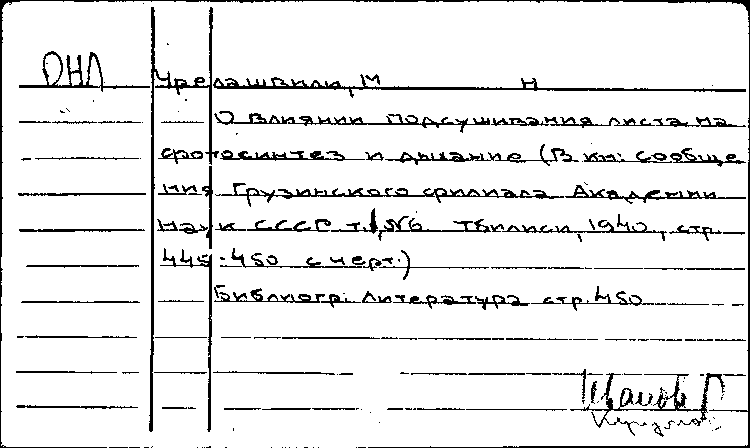 ОНЛ Чрелашвили, М Н
О влиянии подсушивания листа на
фотосинтез и дыхание (В кн: сообще
ния Грузинского филиала Академии
наук СССР т.1, №6 Тбилиси, 1940, стр.
445-450 с черт.)
Библиогр: Литература стр. 450
Иванов Г